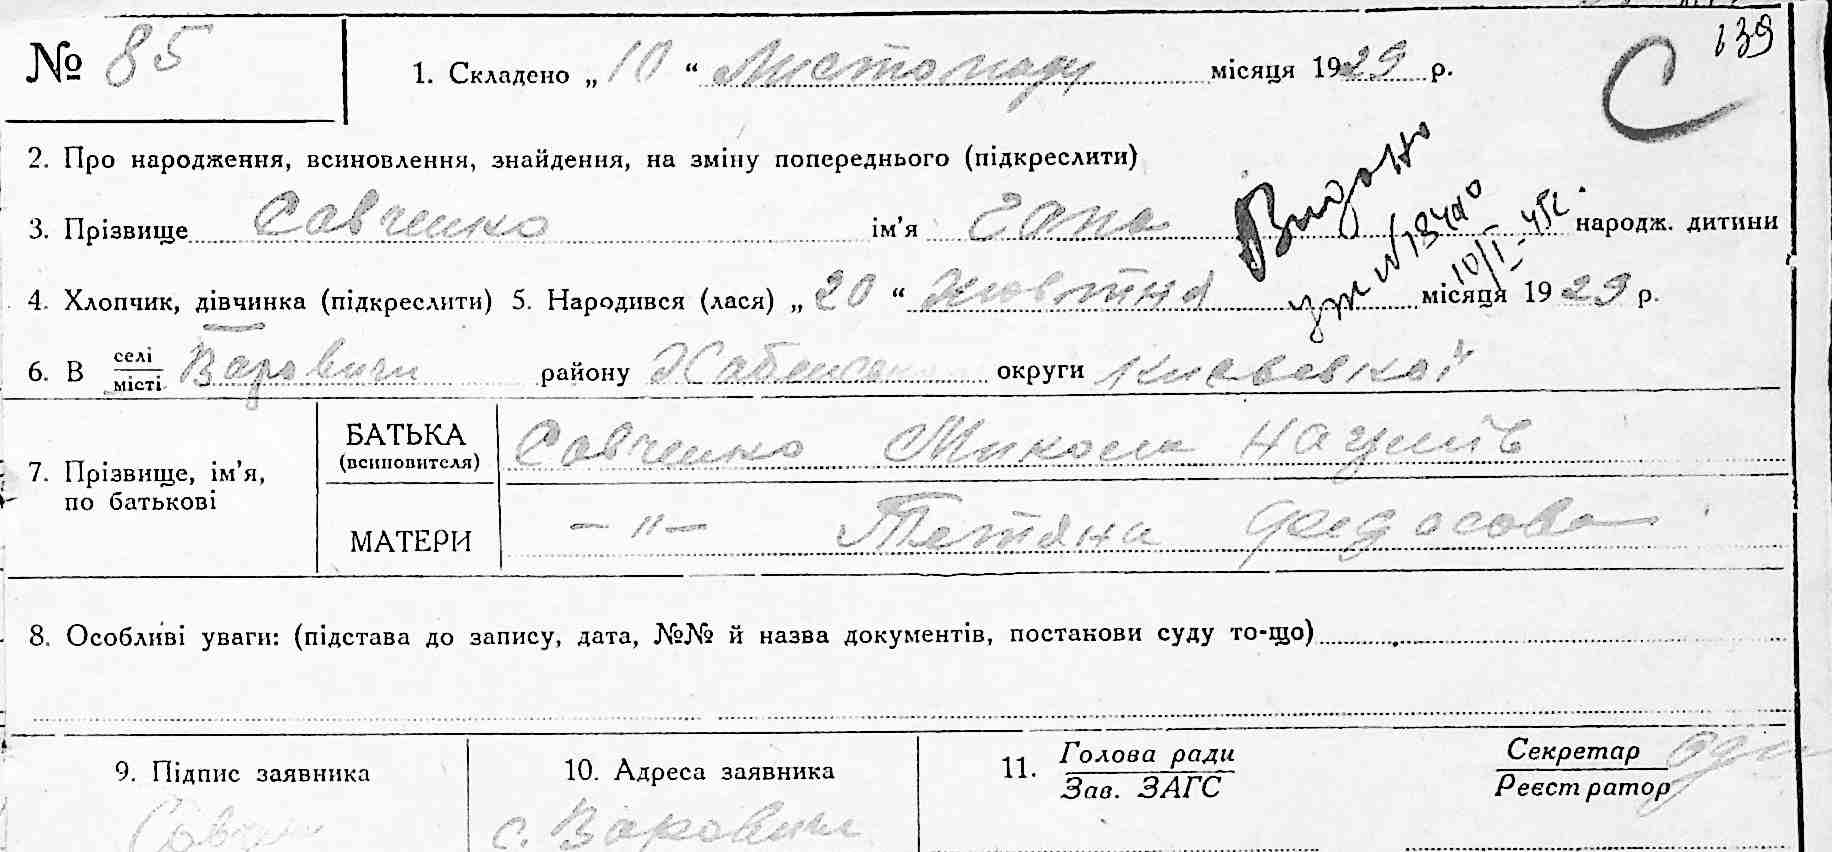 139
№ 85 1. Складено „ 10 “ Листопаду місяця 1929 р. С
2. Про народження, всиновлення, знайдення, на зміну попереднього (підкреслити)
Видано
3. Прізвище Савченко ім’я Гапа народж. дитини
10/I-45
4. Хлопчик, дівчинка (підкреслити) 5. Народився (лася) „ 20 “ Жовтня місяця 1929 р.
6. В селі
місті Варовичи району округи Киевської
7. Прізвище, ім’я,
по батькові
БАТЬКА
(всиновителя)
Савченко Микола Наумів
МАТЕРИ
– „ – Тетяна Федосова
8. Особливі уваги: (підстава до запису, дата, №№ й назва документів, постанови суду то-що)
9. Підпис заявника
10. Адреса заявника
с. Варовичи
11. Голова ради
Зав. ЗАГС
Секретар
Реєстратор